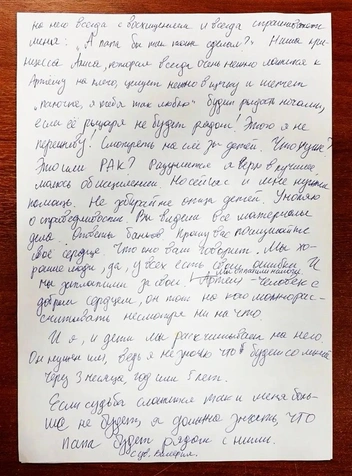 на него всегда с восхищением и всегда спрашивает
меня: "А папа бы так тоже сделал?" Наша прин-
цесса Алиса, которая всегда очень нежно ложится к
Артёму на плечо, целует нежно в щечку и шепчет
"папочка, я тебя так люблю" будет рыдать ночами,
если её рыцаря не будет рядом! Этого я не
переживу! Смотреть на слезы детей. Что хуже?
Это или РАК? Разумеется я верю в лучшее,
молюсь об исцелении. Но сейчас и мне нужна
помощь. Не забирайте отца детей. Умоляю
о справедливости. Вы видели все материалы
дела. Ответы банков. Прошу вас послушайте
своё сердце. Что оно вам говорит. Мы хо-
рошие люди, да, у всех есть свои ошибки. И
мы заплатили за свои.
мы оплатили налоги.
Артём - человек с
добрым сердцем, он тот на кого можно рас-
считывать несмотря ни на что.
И я, и дети мы рассчитываем на него.
Он нужен нам, ведь я не знаю что будет со мной
через 3 месяца, год или 5 лет.
Если судьба сложится так и меня боль-
ше не будет, я должна знать, что
папа будет рядом с ними.